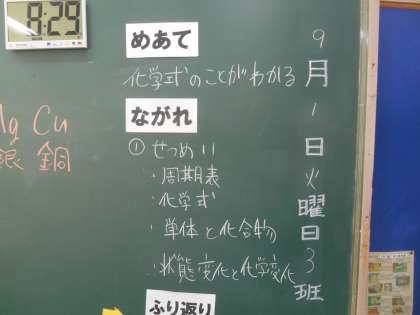 8:29
9月1日火曜日3班
めあて
化学式のことがわかる
ながれ
① せつめい
・周期表
・化学式
・単体と化合物
・状態変化と化学変化
ふり返り
Ag Cu
銀 銅